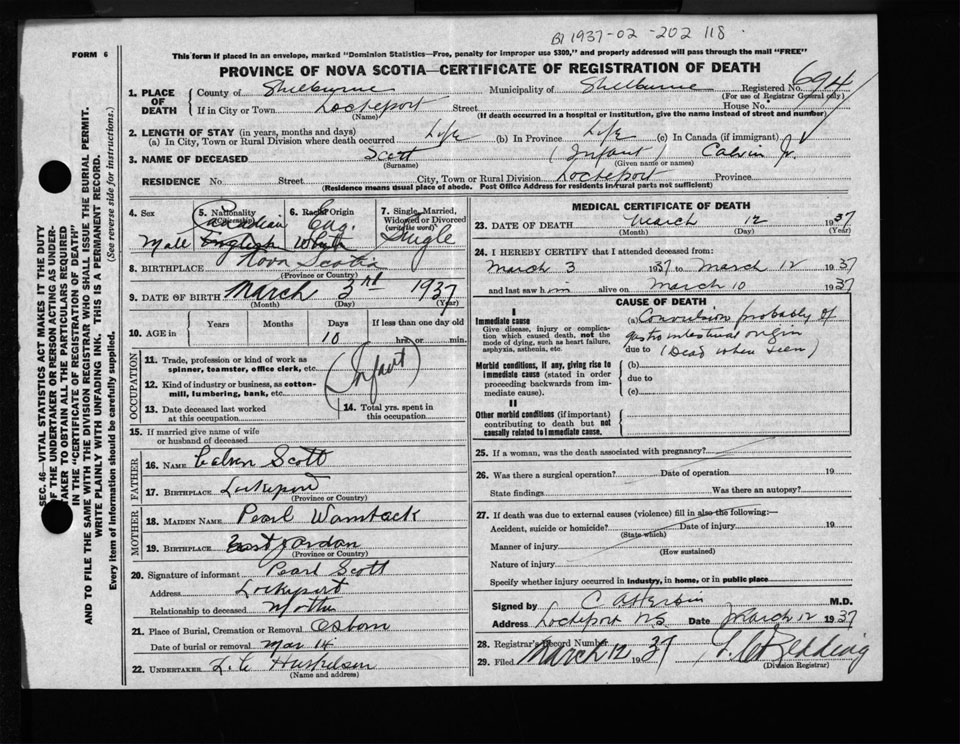 1937-02-202 118
FORM 6
This form if placed in an envelope, marked "Dominion Statistics—Free, penalty for improper use $300," and properly addressed will pass through the mail "FREE"
PROVINCE OF NOVA SCOTIA—CERTIFICATE OF REGISTRATION OF DEATH
1. PLACE OF DEATH
County of Shelburne Municipality of Shelburne Registered No. 694
(For use of Registrar General only)
If in City or Town Lockeport Street House No.
(Name) (If death occurred in a hospital or institution, give the name instead of street and number)
2. LENGTH OF STAY (in years, months and days)
(a) In City, Town or Rural Division where death occurred Life (b) In Province Life (c) In Canada (if immigrant)
3. NAME OF DECEASED Scott (Infant) Calvin Jr.
(Surname) (Given name or names)
RESIDENCE No. Street City, Town or Rural Division Lockeport Province
(Residence means usual place of abode. Post Office Address for residents in rural parts not sufficient)
4. Sex
Male
5. Nationality (Citizenship)
Canadian
English
6. Racial Origin
Eng.
White
7. Single, Married, Widowed or Divorced (write the word)
Single
8. BIRTHPLACE Nova Scotia
(Province or Country)
9. DATE OF BIRTH March 3rd 1937
(Month) (Day) (Year)
10. AGE in Years Months Days If less than one day old
10 hrs. or min.
OCCUPATION
11. Trade, profession or kind of work as spinner, teamster, office clerk, etc.
(Infant)
12. Kind of industry or business, as cotton-mill, lumbering, bank, etc.
13. Date deceased last worked at this occupation
14. Total yrs. spent in this occupation
15. If married give name of wife or husband of deceased
FATHER
16. NAME Calvin Scott
17. BIRTHPLACE Lockeport
(Province or Country)
MOTHER
18. MAIDEN NAME Pearl
19. BIRTHPLACE East Jordan
(Province or Country)
20. Signature of informant Pearl Scott
Address Lockeport
Relationship to deceased Mother
21. Place of Burial, Cremation or Removal Osborn
Date of burial or removal Mar 14
22. UNDERTAKER L. C.
(Name and address)
MEDICAL CERTIFICATE OF DEATH
23. DATE OF DEATH March 12 1937
(Month) (Day) (Year)
24. I HEREBY CERTIFY that I attended deceased from:
March 3 1937 to March 12 1937
and last saw him alive on March 10 1937
CAUSE OF DEATH
I
Immediate cause
Give disease, injury or complication which caused death, not the mode of dying, such as heart failure, asphyxia, asthenia, etc.
(a) Convulsion probably of
gastro intestinal origin
due to (Dead when seen)
Morbid conditions, if any, giving rise to immediate cause (stated in order proceeding backwards from immediate cause).
(b)
due to
(c)
II
Other morbid conditions (if important) contributing to death but not causally related to immediate cause.
25. If a woman, was the death associated with pregnancy?
26. Was there a surgical operation? Date of operation 19
State findings Was there an autopsy?
27. If death was due to external causes (violence) fill in also the following:—
Accident, suicide or homicide? Date of injury 19
(State which)
Manner of injury
(How sustained)
Nature of injury
Specify whether injury occurred in industry, in home, or in public place
Signed by M.D.
Address Lockeport N.S. Date March 12 1937
28. Registrar's Record Number
29. Filed March 12 1937 Redding
(Division Registrar)
SEC. 46—VITAL STATISTICS ACT MAKES IT THE DUTY
OF THE UNDERTAKER OR PERSON ACTING AS UNDERTAKER TO OBTAIN ALL THE PARTICULARS REQUIRED
IN THE "CERTIFICATE OF REGISTRATION OF DEATH"
AND TO FILE THE SAME WITH THE DIVISION REGISTRAR WHO SHALL ISSUE THE BURIAL PERMIT.
WRITE PLAINLY WITH UNFADING INK. THIS IS A PERMANENT RECORD.
Every item of information should be carefully supplied. (See reverse side for instructions.)